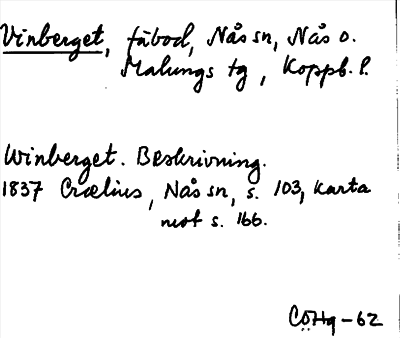 Vinberget, fäbod, Nås sn, Nås o.
Malungs tg, Koppb. l.
Winberget. Beskrivning.
1837 Crælius, Nås sn, s. 103, karta
mot s. 166.
CÖHq-62